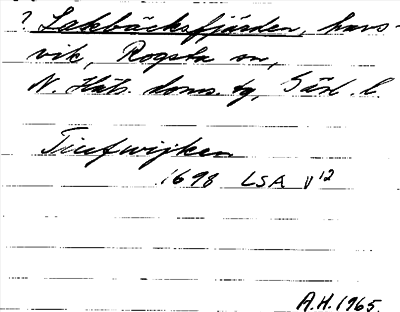 ? Laxbäcksfjärden, havs-
vik, Rogsta sn,
N. Häls. doms. tg, Gävl. l.
Tiufwijken
1698 LSA V 12
A.H. 1965.